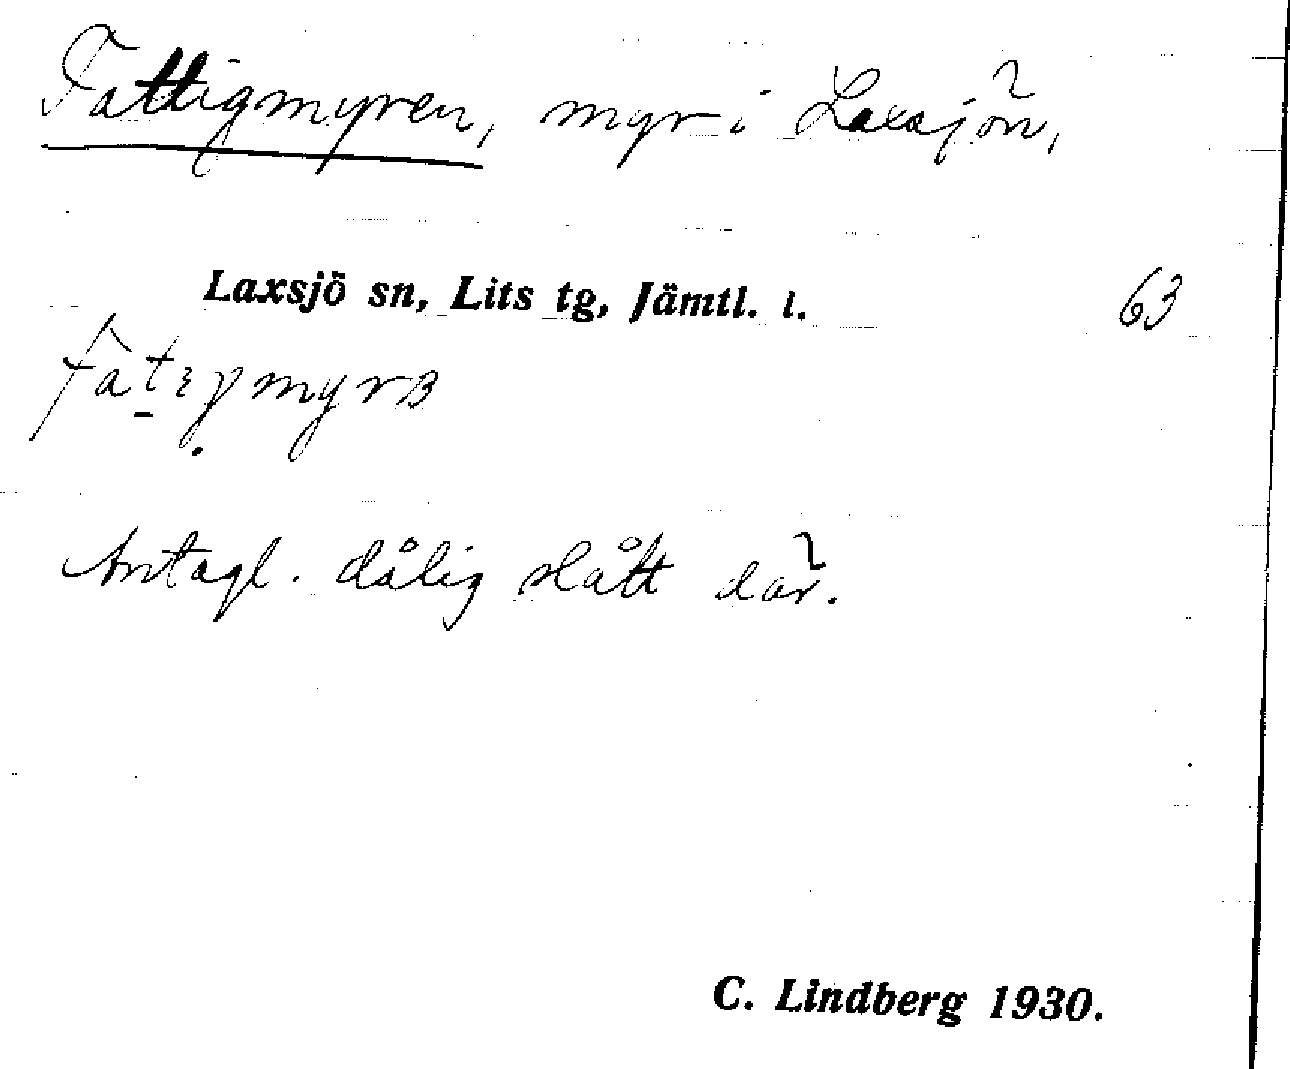 Fattigmyren, myr i Laxsjön,
Laxsjö sn, Lits tg, Jämtl. l.
63
Antagl. dålig slått där.
C. Lindberg 1930.